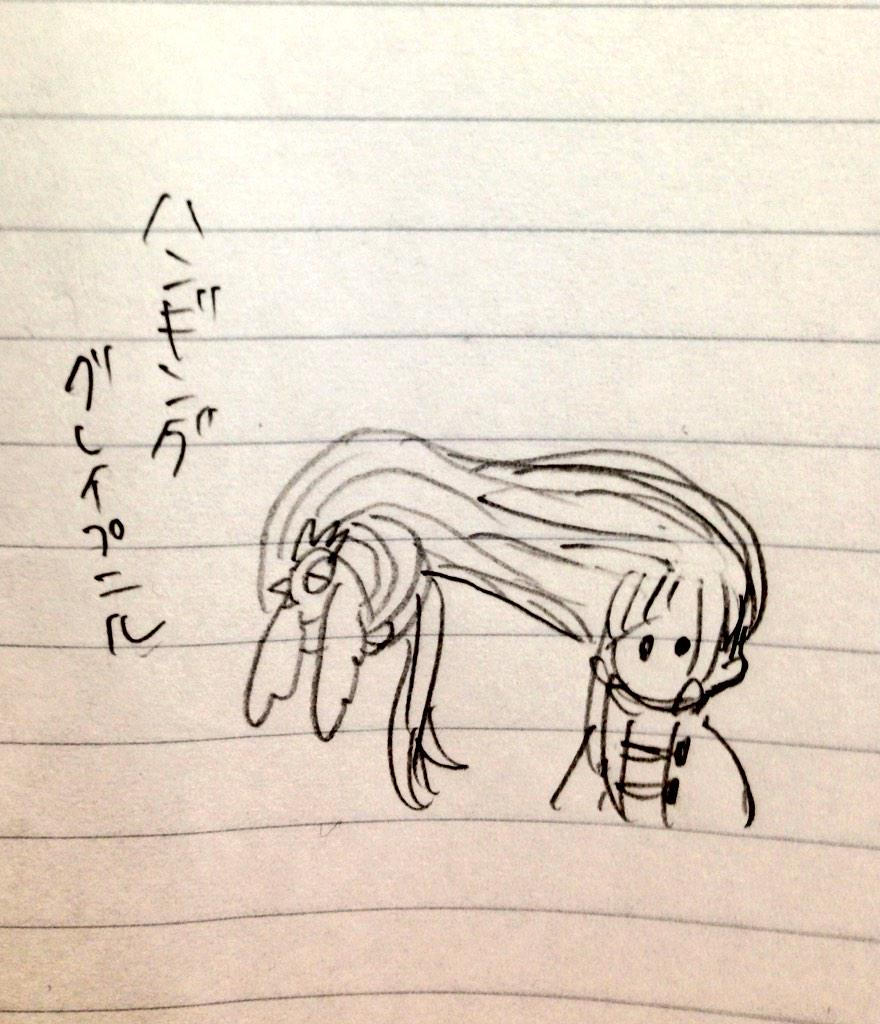 ハンギング
グレイプニル